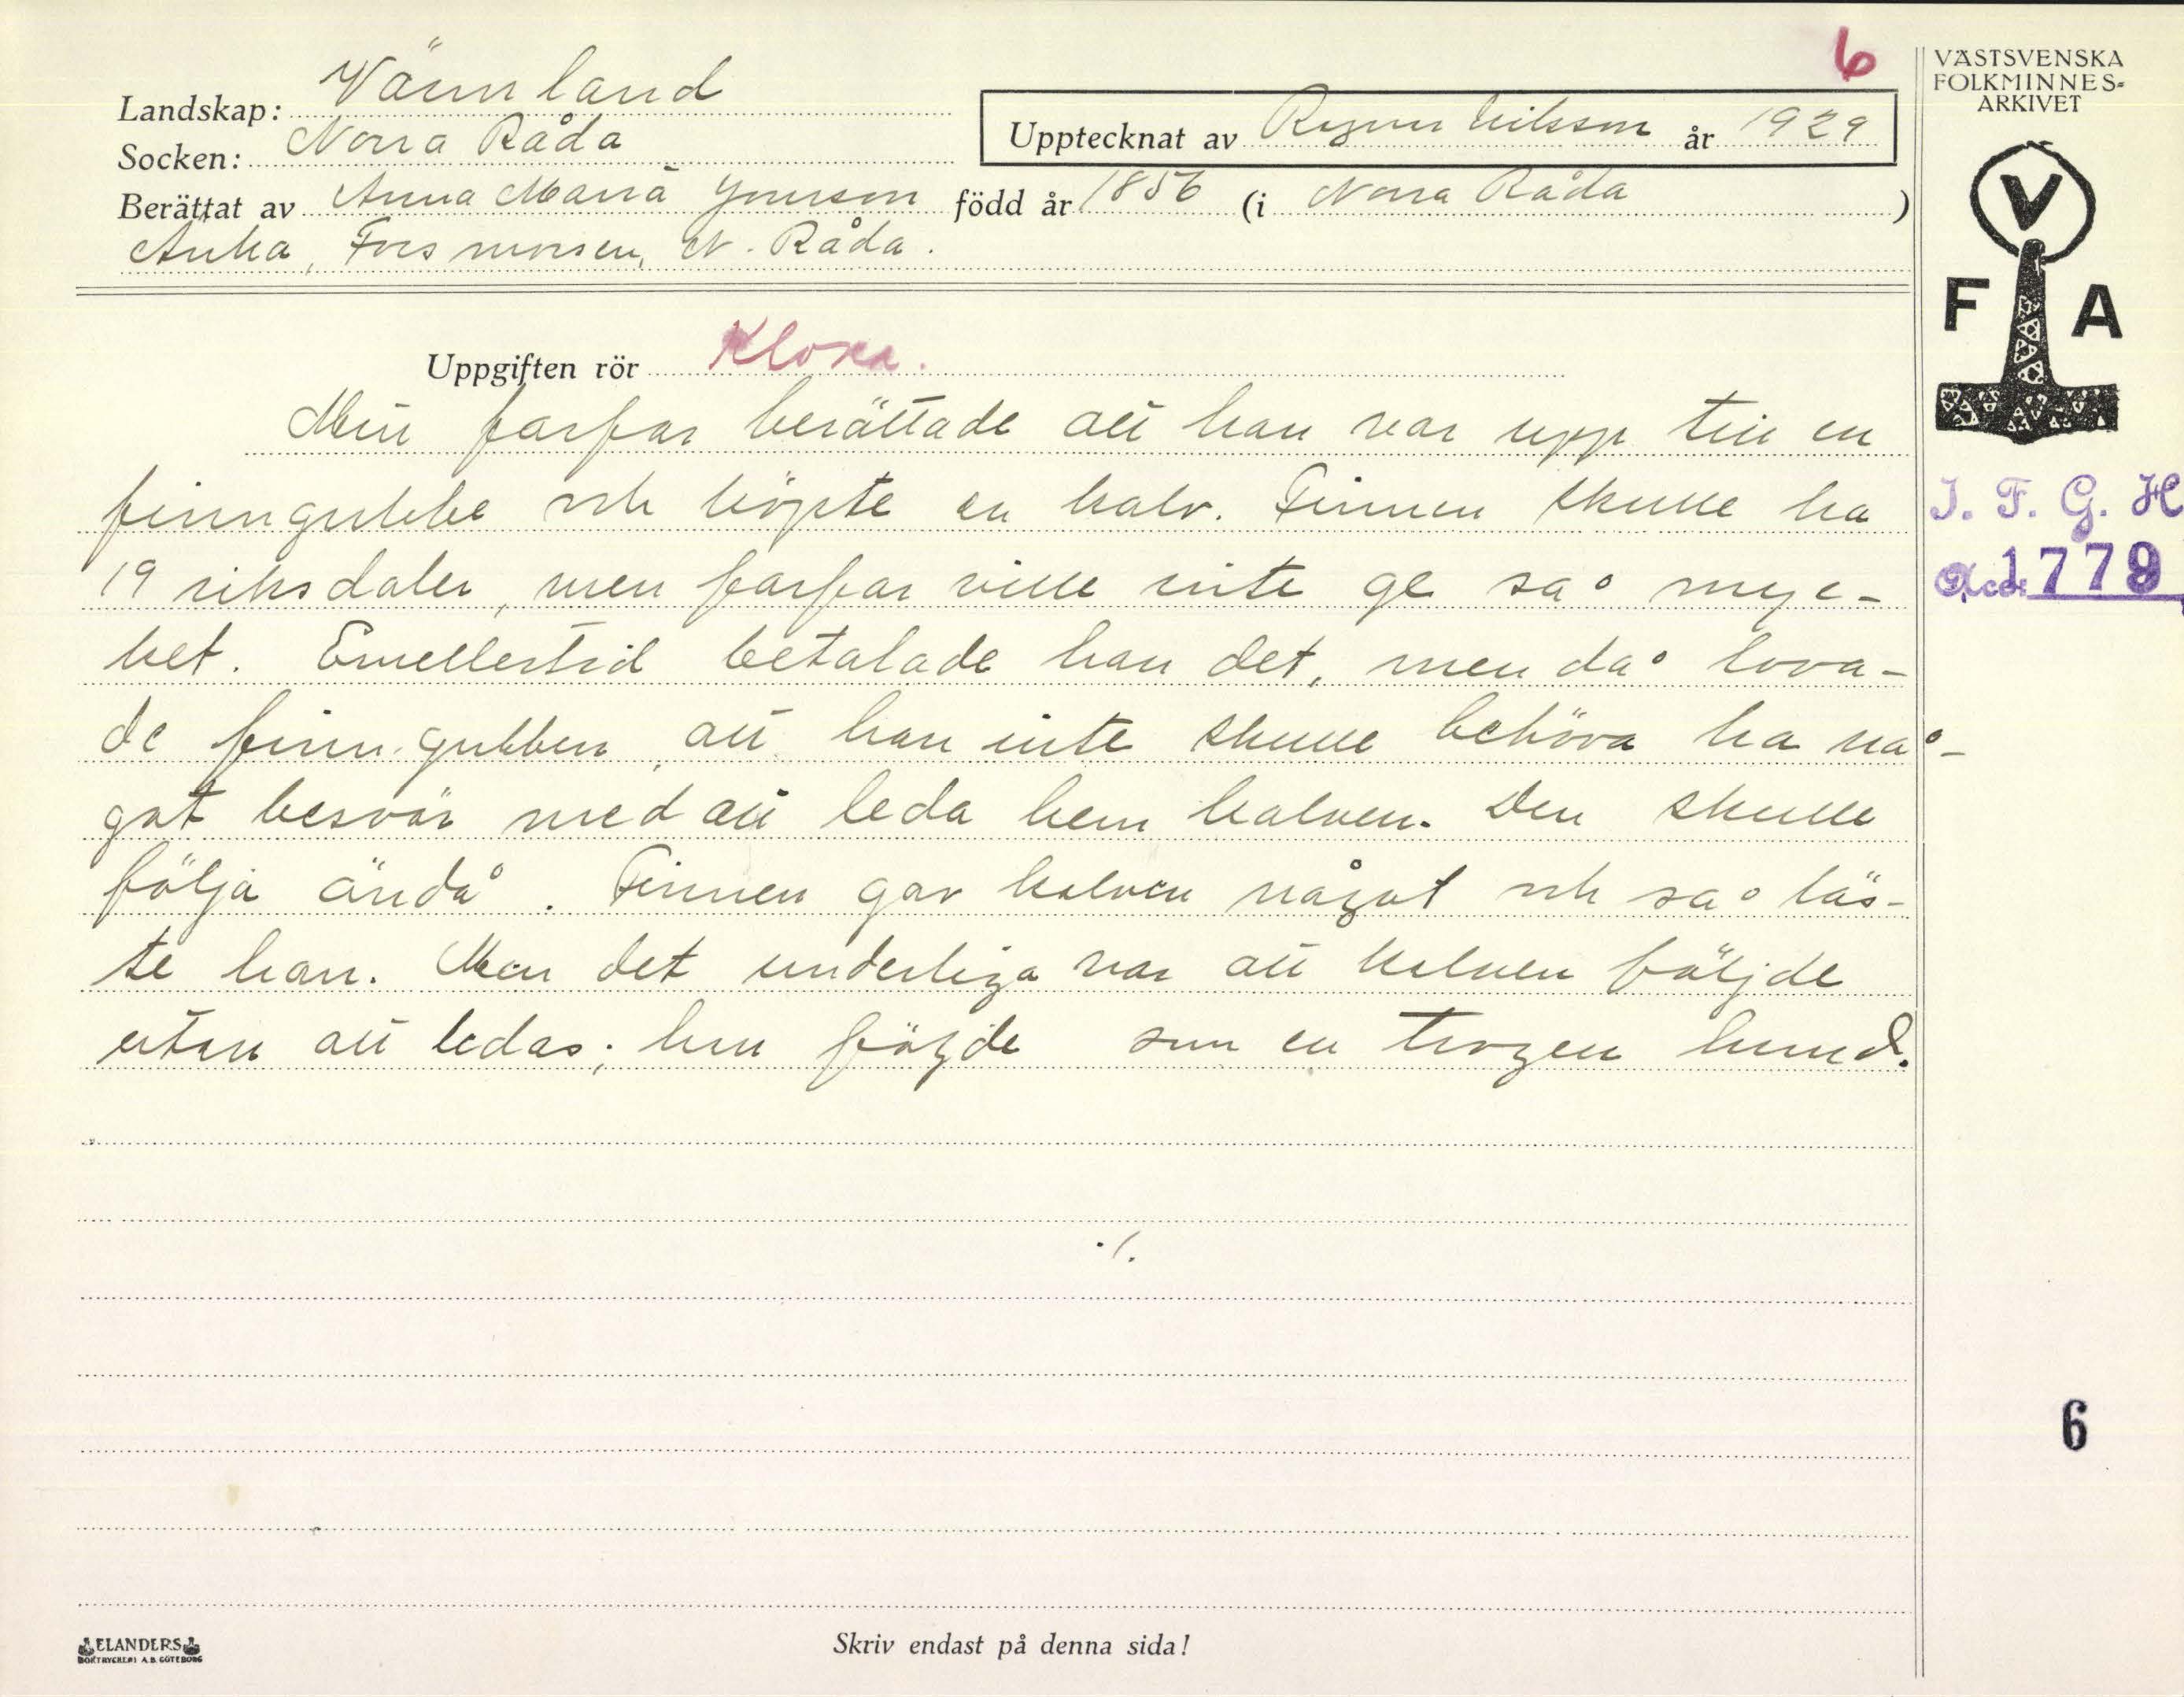 6
VÄSTSVENSKA
FOLKMINNES-
ARKIVET
Landskap: Värmland
Upptecknat av Ragnar Nilsson år 1929
Socken: Norra Råda
Berättat av Anna Maria Jonsson född år 1856 (i Norra Råda)
Änka, Forsmorsen, N. Råda.
V
F A
Uppgiften rör Kloka.
Min farfar berättade att han var upp till en
finngubbe och köpte en kalv. Finnen skulle ha
19 riksdaler, men farfar ville inte ge så myc-
ket. Emellertid betalade han det, men då lova-
de finngubben att han inte skulle behöva ha nå-
got besvär med att leda hem kalven. Den skulle
följa ändå. Finnen gav kalven något och så läs-
te han. Men det underliga var att kalven följde
utan att ledas; hon följde som en trogen hund.
./.
I. F. G. H
Acc. 1779
6
ELANDERS
BOKTRYCKERI A.B. GÖTEBORG
Skriv endast på denna sida!